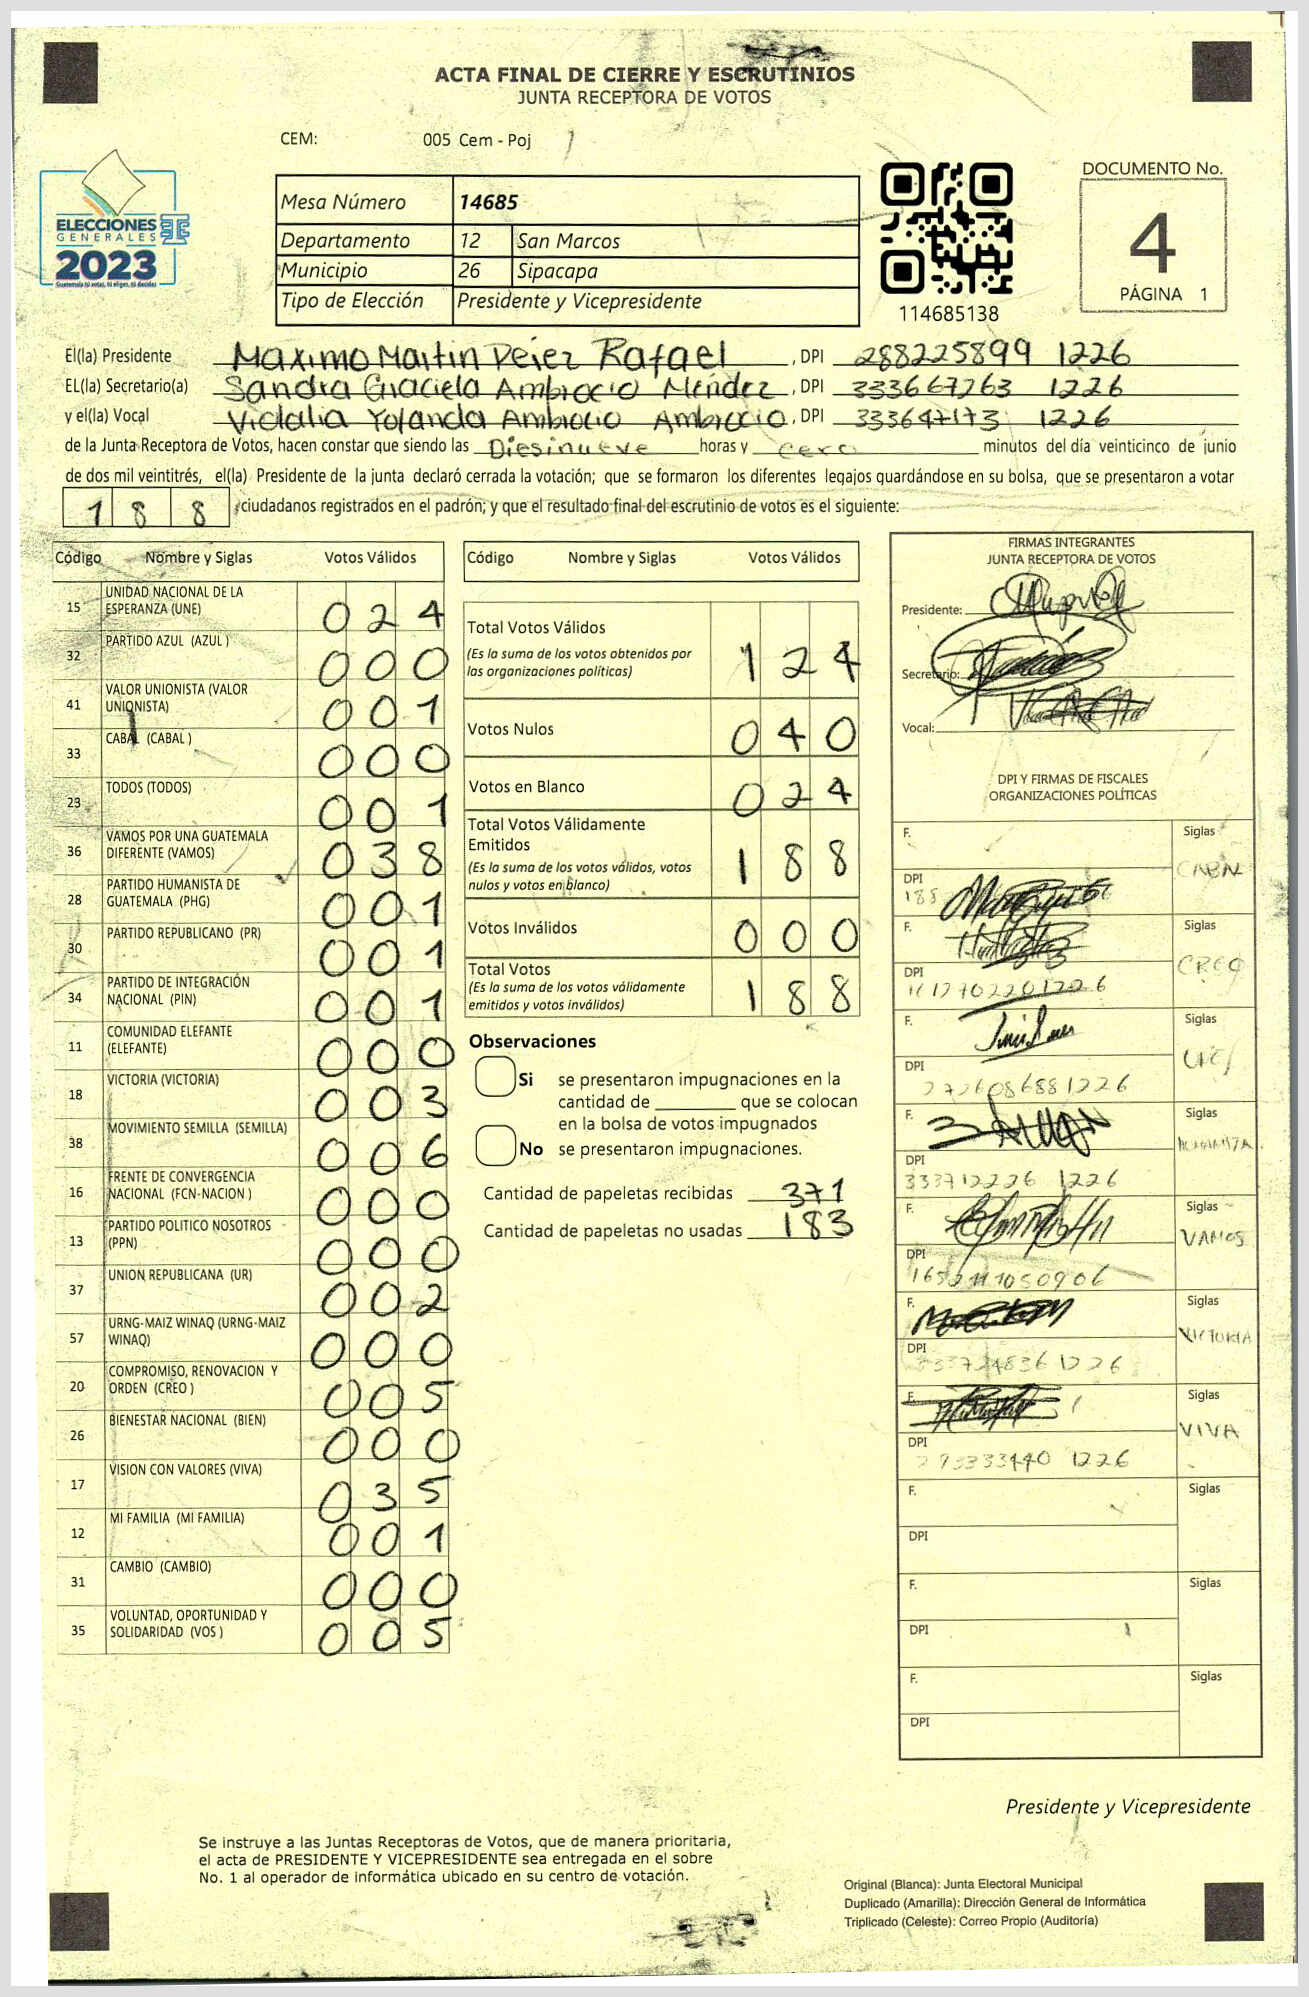 ACTA FINAL DE CIERRE Y ESCRUTINIOS
JUNTA RECEPTORA DE VOTOS
CEM: 005 Cem - Poj
ELECCIONES
GENERALES
2023
Mesa Número 14685
Departamento 12 San Marcos
Municipio 26 Sipacapa
Tipo de Elección Presidente y Vicepresidente
114685138
DOCUMENTO No.
4
PÁGINA 1
El(la) Presidente Maximo Martin Perez Rafael, DPI 288225899 1226
EL(la) Secretario(a) Sandra Graciela Ambrocio Méndez, DPI 333667263 1226
y el(la) Vocal Vidalia Yolanda Ambrocio Ambrocio, DPI 333647173 1226
de la Junta Receptora de Votos, hacen constar que siendo las Diesinueve horas y cero minutos del día veinticinco de junio
de dos mil veintitrés, el(la) Presidente de la junta declaró cerrada la votación; que se formaron los diferentes legajos guardándose en su bolsa, que se presentaron a votar
188 ciudadanos registrados en el padrón; y que el resultado final del escrutinio de votos es el siguiente:
Código Nombre y Siglas Votos Válidos
15 UNIDAD NACIONAL DE LA ESPERANZA (UNE) 024
32 PARTIDO AZUL (AZUL ) 000
41 VALOR UNIONISTA (VALOR UNIONISTA) 001
33 CABAL (CABAL ) 000
23 TODOS (TODOS) 001
36 VAMOS POR UNA GUATEMALA DIFERENTE (VAMOS) 038
28 PARTIDO HUMANISTA DE GUATEMALA (PHG) 001
30 PARTIDO REPUBLICANO (PR) 001
34 PARTIDO DE INTEGRACIÓN NACIONAL (PIN) 001
11 COMUNIDAD ELEFANTE (ELEFANTE) 000
18 VICTORIA (VICTORIA) 003
38 MOVIMIENTO SEMILLA (SEMILLA) 006
16 FRENTE DE CONVERGENCIA NACIONAL (FCN-NACION ) 000
13 PARTIDO POLITICO NOSOTROS (PPN) 000
37 UNION REPUBLICANA (UR) 002
57 URNG-MAIZ WINAQ (URNG-MAIZ WINAQ) 000
20 COMPROMISO, RENOVACION Y ORDEN (CREO ) 005
26 BIENESTAR NACIONAL (BIEN) 000
17 VISION CON VALORES (VIVA) 035
12 MI FAMILIA (MI FAMILIA) 001
31 CAMBIO (CAMBIO) 000
35 VOLUNTAD, OPORTUNIDAD Y SOLIDARIDAD (VOS ) 005
Código Nombre y Siglas Votos Válidos
Total Votos Válidos 124
(Es la suma de los votos obtenidos por
las organizaciones políticas)
Votos Nulos 040
Votos en Blanco 024
Total Votos Válidamente
Emitidos 188
(Es la suma de los votos válidos, votos
nulos y votos en blanco)
Votos Inválidos 000
Total Votos 188
(Es la suma de los votos válidamente
emitidos y votos inválidos)
Observaciones
Si se presentaron impugnaciones en la
cantidad de ________ que se colocan
en la bolsa de votos impugnados
No se presentaron impugnaciones.
Cantidad de papeletas recibidas 371
Cantidad de papeletas no usadas 183
FIRMAS INTEGRANTES
JUNTA RECEPTORA DE VOTOS
Presidente:
Secretario:
Vocal:
DPI Y FIRMAS DE FISCALES
ORGANIZACIONES POLÍTICAS
F. Siglas
DPI
F. Siglas
DPI
F. Siglas
DPI 2726086881226
F. Siglas
DPI 333712226 1226
F. Siglas VAMOS
DPI
F. Siglas VICTORIA
DPI 333724836 1226
F. Siglas VIVA
DPI 293333440 1226
F. Siglas
DPI
F. Siglas
DPI
F. Siglas
DPI
Presidente y Vicepresidente
Se instruye a las Juntas Receptoras de Votos, que de manera prioritaria,
el acta de PRESIDENTE Y VICEPRESIDENTE sea entregada en el sobre
No. 1 al operador de informática ubicado en su centro de votación.
Original (Blanca): Junta Electoral Municipal
Duplicado (Amarilla): Dirección General de Informática
Triplicado (Celeste): Correo Propio (Auditoría)